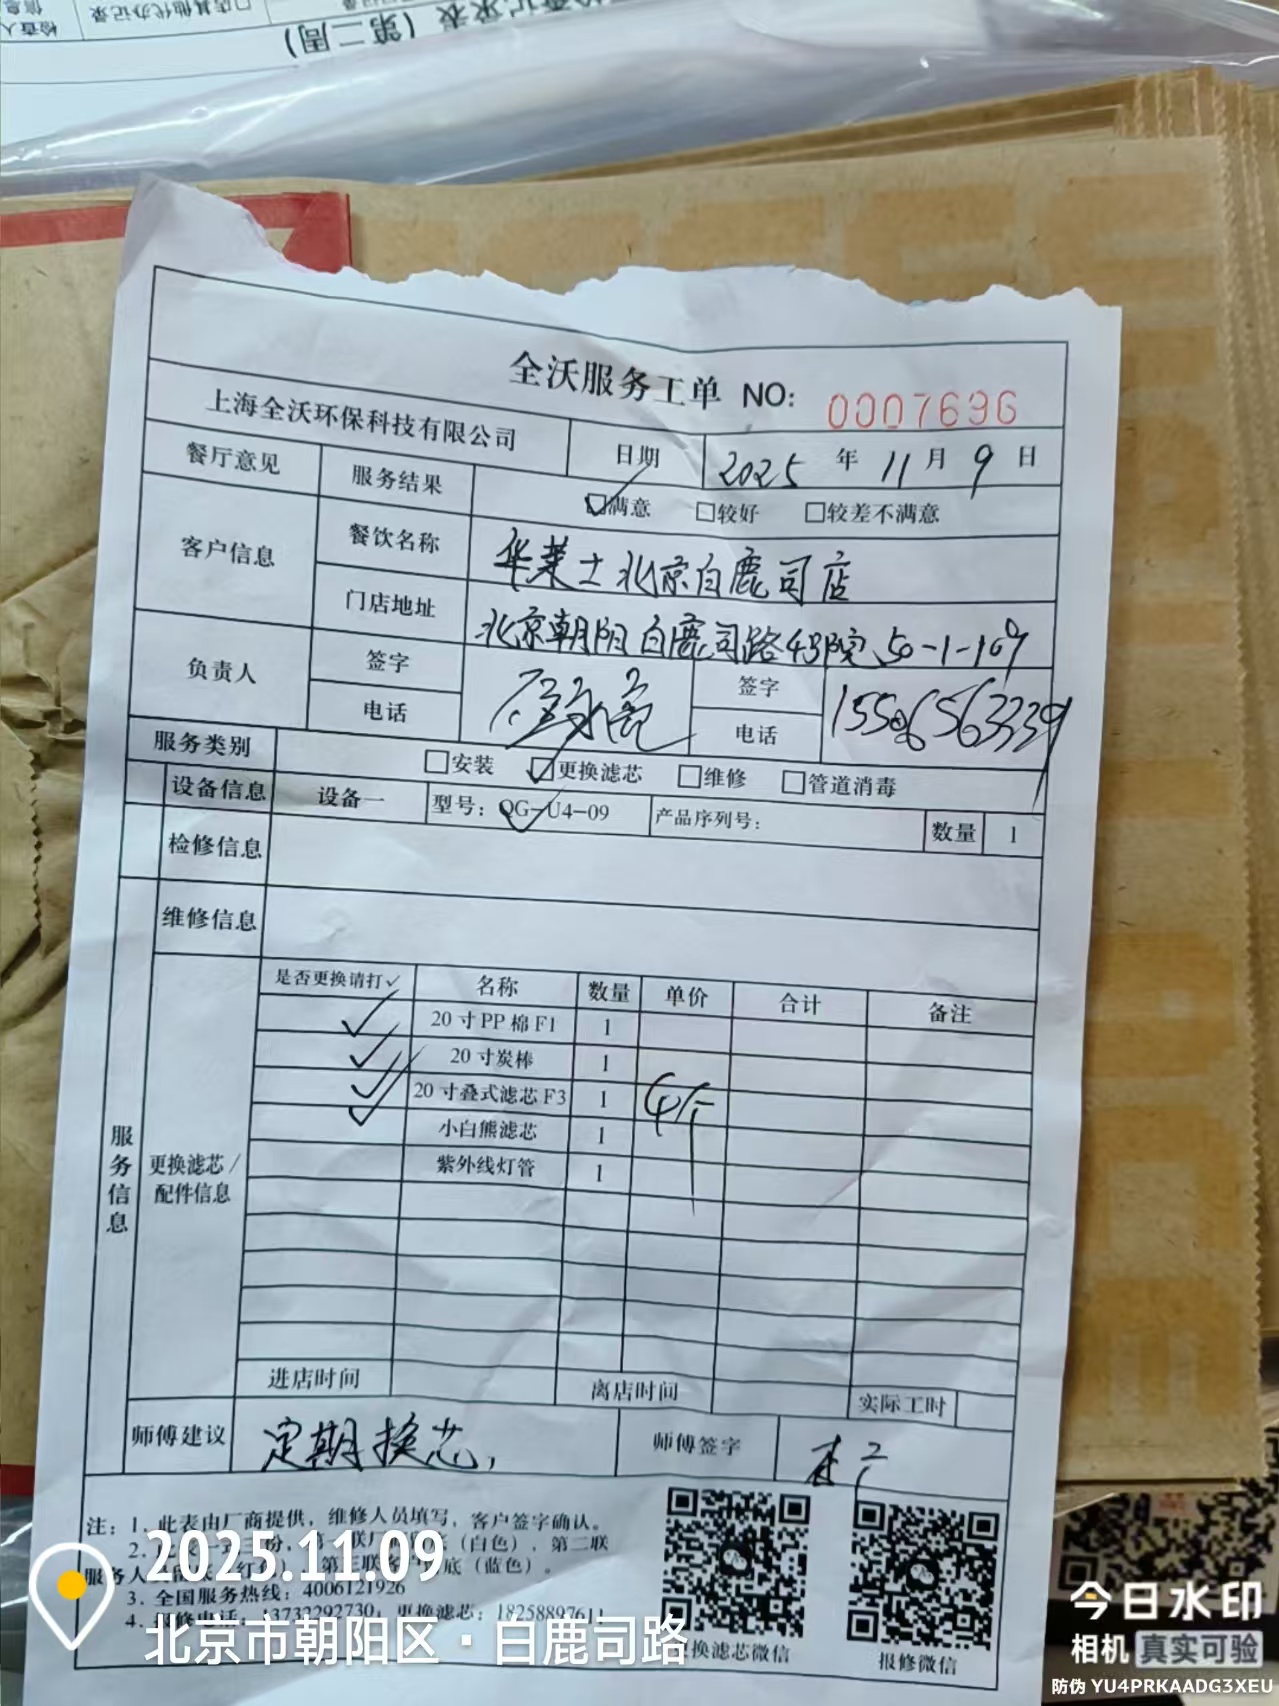 检查记录表（第二周）
门店其他代办记录
检查人
信息
全沃服务工单 NO: 0007696
上海全沃环保科技有限公司 日期 2025 年 11 月 9 日
餐厅意见 服务结果 ☑满意 □较好 □较差不满意
客户信息 餐饮名称 华莱士北京白鹿司店
门店地址 北京朝阳白鹿司路4号院50-1-109
负责人 签字 签字
电话 电话
服务类别 □安装 ☑更换滤芯 □维修 □管道消毒
设备信息 设备一 型号：QG-U4-09 产品序列号： 数量 1
检修信息
维修信息
服务信息
更换滤芯/配件信息
是否更换请打✓ 名称 数量 单价 合计 备注
✓ 20寸PP棉F1 1
✓ 20寸炭棒 1
✓ 20寸叠式滤芯F3 1
✓ 小白熊滤芯 1
紫外线灯管 1
进店时间 离店时间 实际工时
师傅建议 定期换芯， 师傅签字
注：1、此表由厂商提供，维修人员填写，客户签字确认。
2. （白色），第二联
服务人 第三联 底（蓝色）。
3. 全国服务热线：4006121926
4. 13732292730，更换滤芯：1825889761
换滤芯微信 报修微信
2025.11.09
北京市朝阳区·白鹿司路
今日水印
相机 真实可验
防伪 YU4PRKAADG3XEU